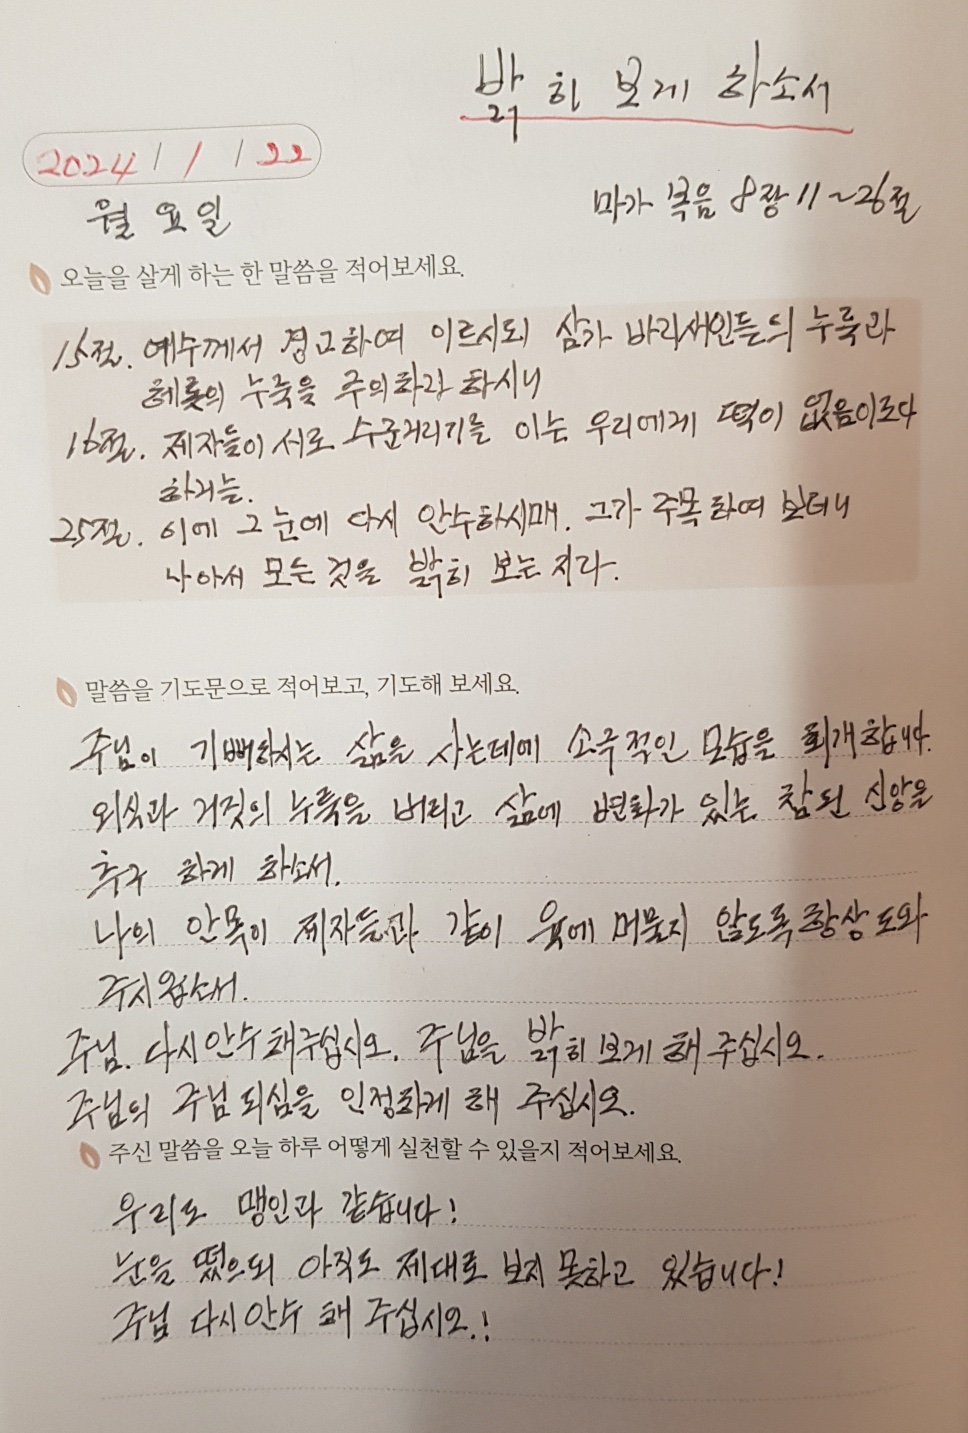 밝히 보게 하소서
2024 / 1 / 22
월요일
마가복음 8장 11~26절
오늘을 살게 하는 한 말씀을 적어보세요.
15절. 예수께서 경고하여 이르시되 삼가 바리새인들의 누룩과
헤롯의 누룩을 주의하라 하시니
16절. 제자들이 서로 수군거리기를 이는 우리에게 떡이 없음이로다
하거늘.
25절. 이에 그 눈에 다시 안수하시매. 그가 주목하여 보더니
나아서 모든 것을 밝히 보는지라.
말씀을 기도문으로 적어보고, 기도해 보세요.
주님이 기뻐하시는 삶을 사는데에 소극적인 모습을 회개합니다.
외식과 거짓의 누룩을 버리고 삶에 변화가 있는 참된 신앙을
추구 하게 하소서.
나의 안목이 제자들과 같이 육에 머물지 않도록 항상 도와
주시옵소서.
주님. 다시 안수 해주십시오. 주님을 밝히 보게 해 주십시오.
주님의 주님 되심을 인정하게 해 주십시오.
주신 말씀을 오늘 하루 어떻게 실천할 수 있을지 적어보세요.
우리도 맹인과 같습니다!
눈을 떴으되 아직도 제대로 보지 못하고 있습니다!
주님 다시 안수 해 주십시오.!